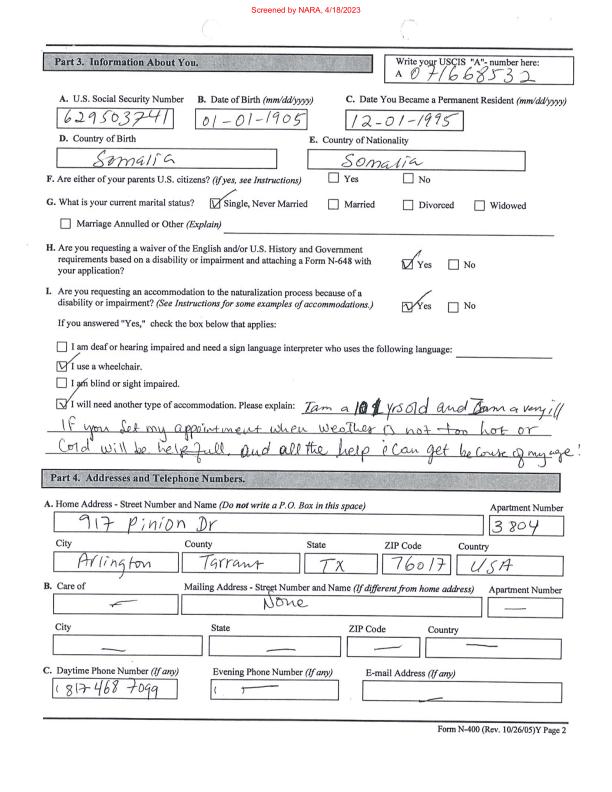 Screened by NARA, 4/18/2023
Part 3. Information About You.
Write your USCIS "A"- number here:
A 071668532
A. U.S. Social Security Number B. Date of Birth (mm/dd/yyyy) C. Date You Became a Permanent Resident (mm/dd/yyyy)
629503741 01-01-1905 12-01-1995
D. Country of Birth E. Country of Nationality
Somalia Somalia
F. Are either of your parents U.S. citizens? (if yes, see Instructions) Yes No
G. What is your current marital status? Single, Never Married Married Divorced Widowed
Marriage Annulled or Other (Explain)
H. Are you requesting a waiver of the English and/or U.S. History and Government
requirements based on a disability or impairment and attaching a Form N-648 with Yes No
your application?
I. Are you requesting an accommodation to the naturalization process because of a
disability or impairment? (See Instructions for some examples of accommodations.) Yes No
If you answered "Yes," check the box below that applies:
I am deaf or hearing impaired and need a sign language interpreter who uses the following language:
I use a wheelchair.
I am blind or sight impaired.
I will need another type of accommodation. Please explain: I am a 101 yrs old and I am a very ill
If you Set my appointment when weather is not too hot or
Cold will be helpfull. and all the help i can get because of my age!
Part 4. Addresses and Telephone Numbers.
A. Home Address - Street Number and Name (Do not write a P.O. Box in this space) Apartment Number
917 Pinion Dr 3804
City County State ZIP Code Country
Arlington Tarrant TX 76017 USA
B. Care of Mailing Address - Street Number and Name (If different from home address) Apartment Number
None
City State ZIP Code Country
C. Daytime Phone Number (If any) Evening Phone Number (If any) E-mail Address (If any)
( 817 468 7099 (
Form N-400 (Rev. 10/26/05)Y Page 2